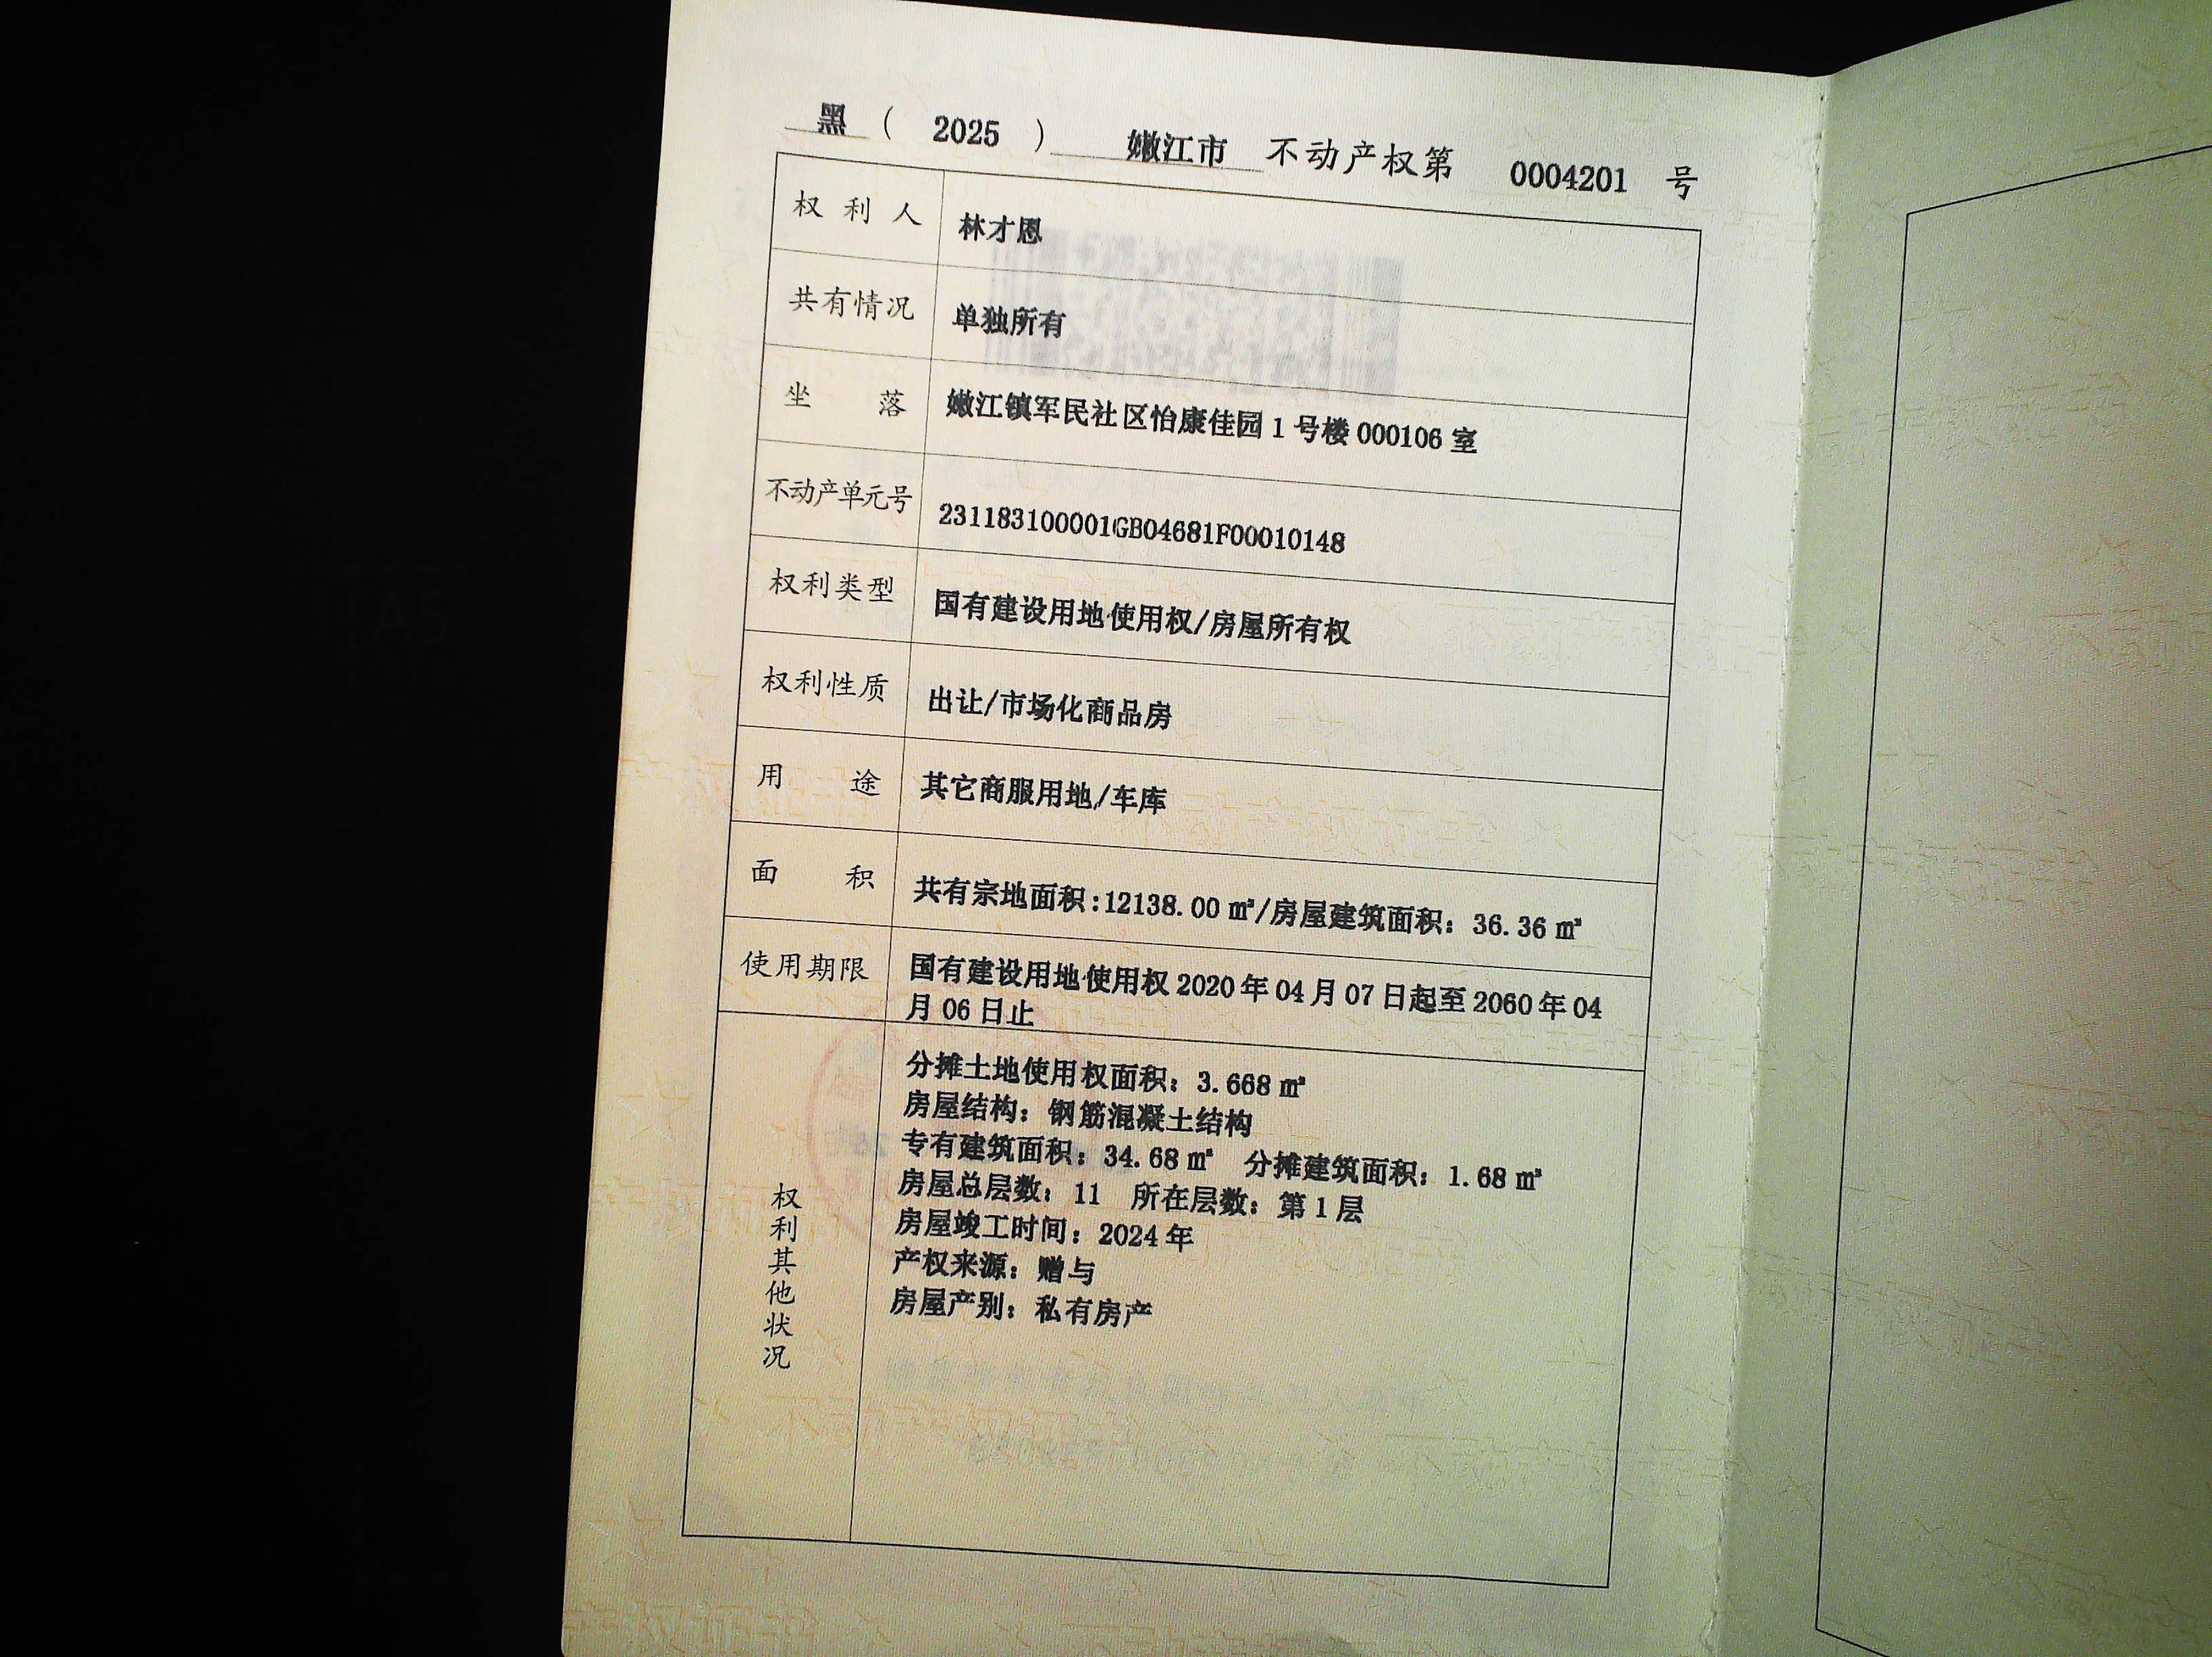 黑 ( 2025 ) 嫩江市 不动产权第 0004201 号
权利人 林才恩
共有情况 单独所有
坐落 嫩江镇军民社区怡康佳园1号楼000106室
不动产单元号 231183100001GB04681F00010148
权利类型 国有建设用地使用权/房屋所有权
权利性质 出让/市场化商品房
用途 其它商服用地/车库
面积 共有宗地面积:12138.00㎡/房屋建筑面积：36.36㎡
使用期限 国有建设用地使用权2020年04月07日起至2060年04
月06日止
权利其他状况
分摊土地使用权面积：3.668㎡
房屋结构：钢筋混凝土结构
专有建筑面积：34.68㎡ 分摊建筑面积：1.68㎡
房屋总层数：11 所在层数：第1层
房屋竣工时间：2024年
产权来源：赠与
房屋产别：私有房产